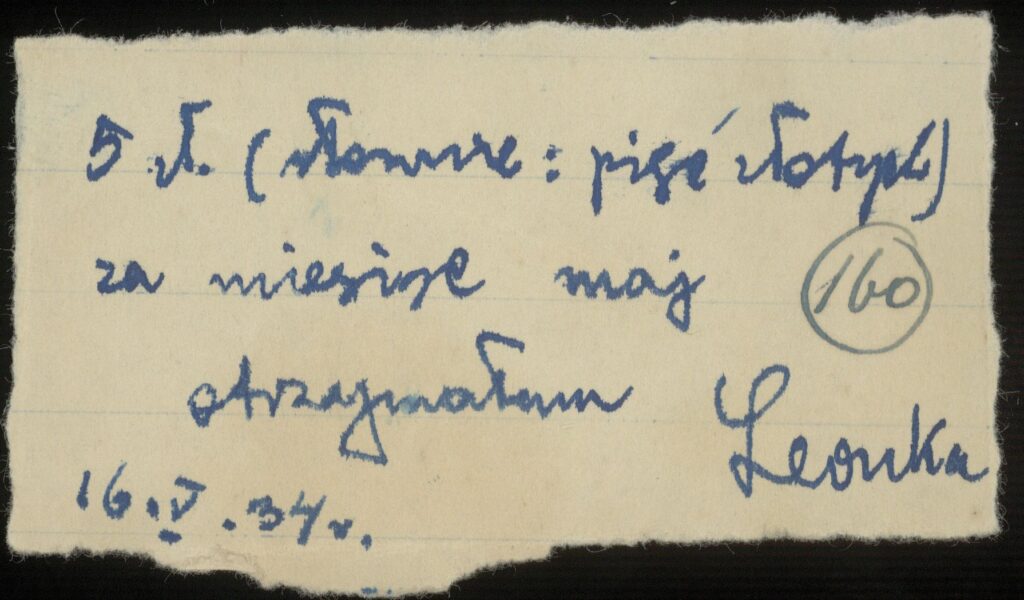 5 zł. (słownie: pięć złotych)
za miesiąc maj
160
otrzymałam Leonka
16.V.34r.